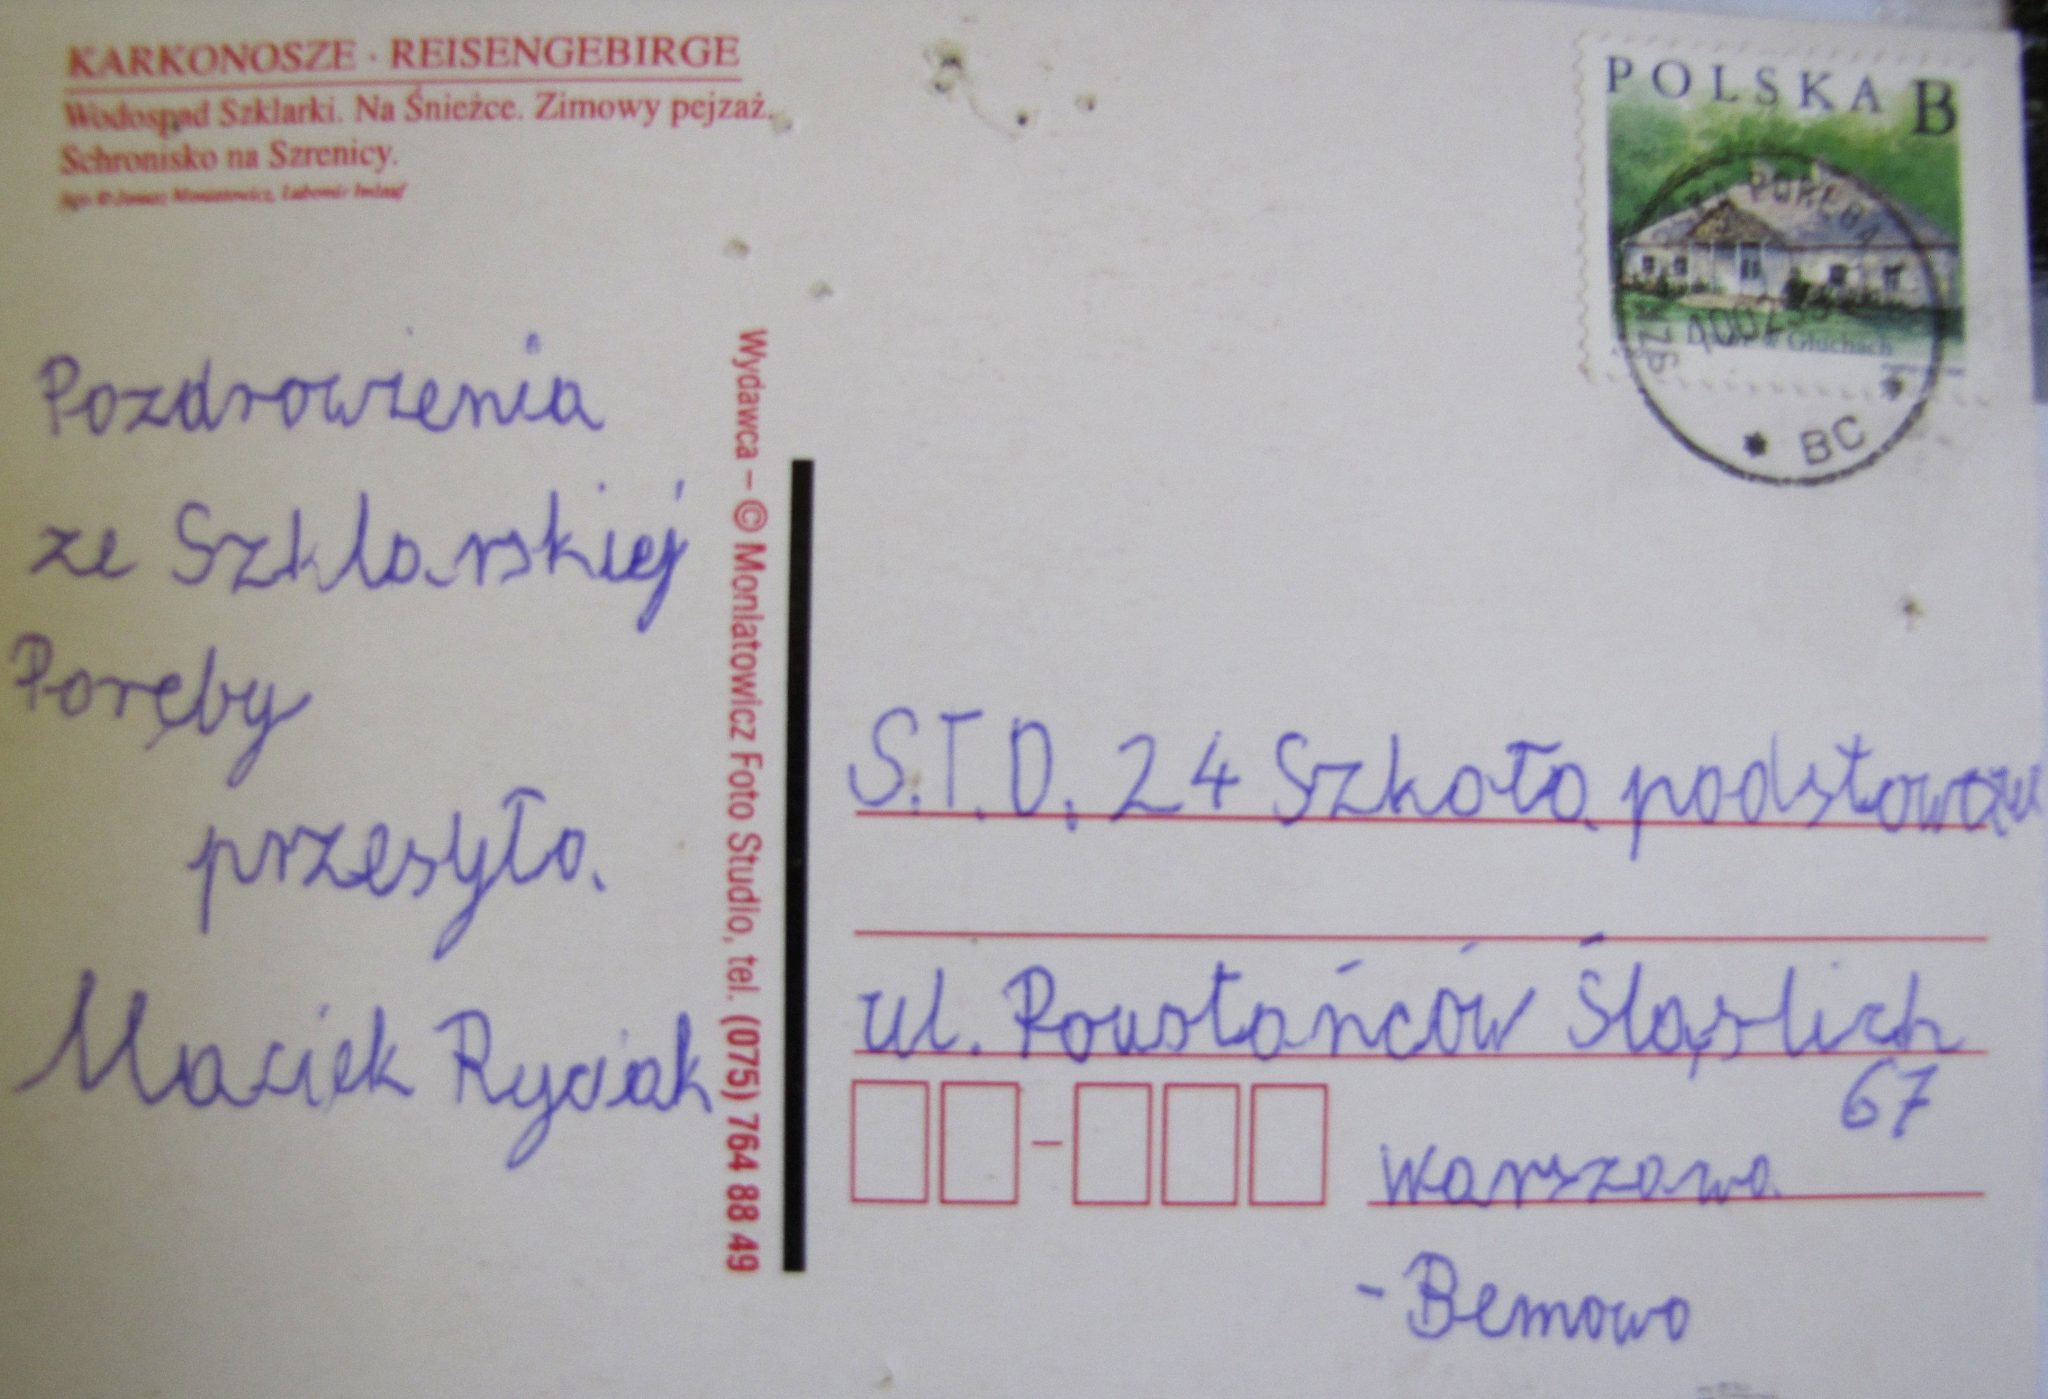 KARKONOSZE · REISENGEBIRGE
Wodospad Szklarki. Na Śnieżce. Zimowy pejzaż.
Schronisko na Szrenicy.
Pozdrowienia
ze Szklarskiej
Poręby
przesyła.
Maciek Ryciak
Wydawca – © Moniatowicz Foto Studio, tel. (075) 764 88 49
POLSKA B
PORĘBA
BC
S.T.D. 24 Szkoła podstawowa
ul. Powstańców Śląslich
67
Warszawa
- Bemowo